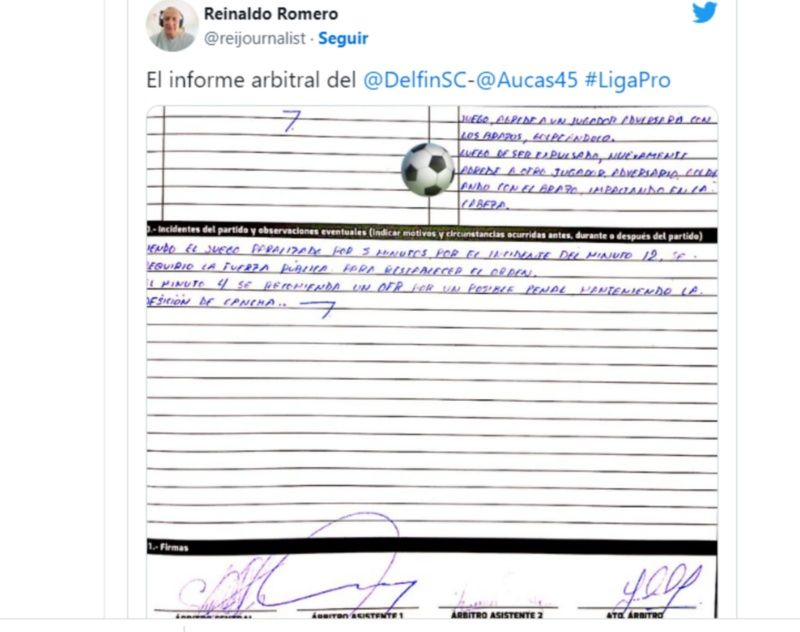 Reinaldo Romero
@reijournalist · Seguir
El informe arbitral del @DelfinSC-@Aucas45 #LigaPro
JUEGO, AGREDE A UN JUGADOR ADVERSARIO CON
LOS BRAZOS, GOLPEÁNDOLO.
LUEGO DE SER EXPULSADO, NUEVAMENTE
AGREDE A OTRO JUGADOR ADVERSARIO, CODE
ANDO CON EL BRAZO, IMPACTANDO EN LA
CABEZA.
.- Incidentes del partido y observaciones eventuales (Indicar motivos y circunstancias ocurridas antes, durante o después del partido)
IENDO EL JUEGO PARALIZADO POR 5 MINUTOS POR EL INCIDENTE DEL MINUTO 12, SE
EQUIRIO LA FUERZA PÚBLICA PARA RESTABLECER EL ORDEN.
EL MINUTO 4 SE RECOMIENDA UN OFR POR UN POSIBLE PENAL, MANTENIENDO LA
DESICIÓN DE CANCHA..
1.- Firmas
ÁRBITRO CENTRAL ÁRBITRO ASISTENTE 1 ÁRBITRO ASISTENTE 2 4TO. ÁRBITRO